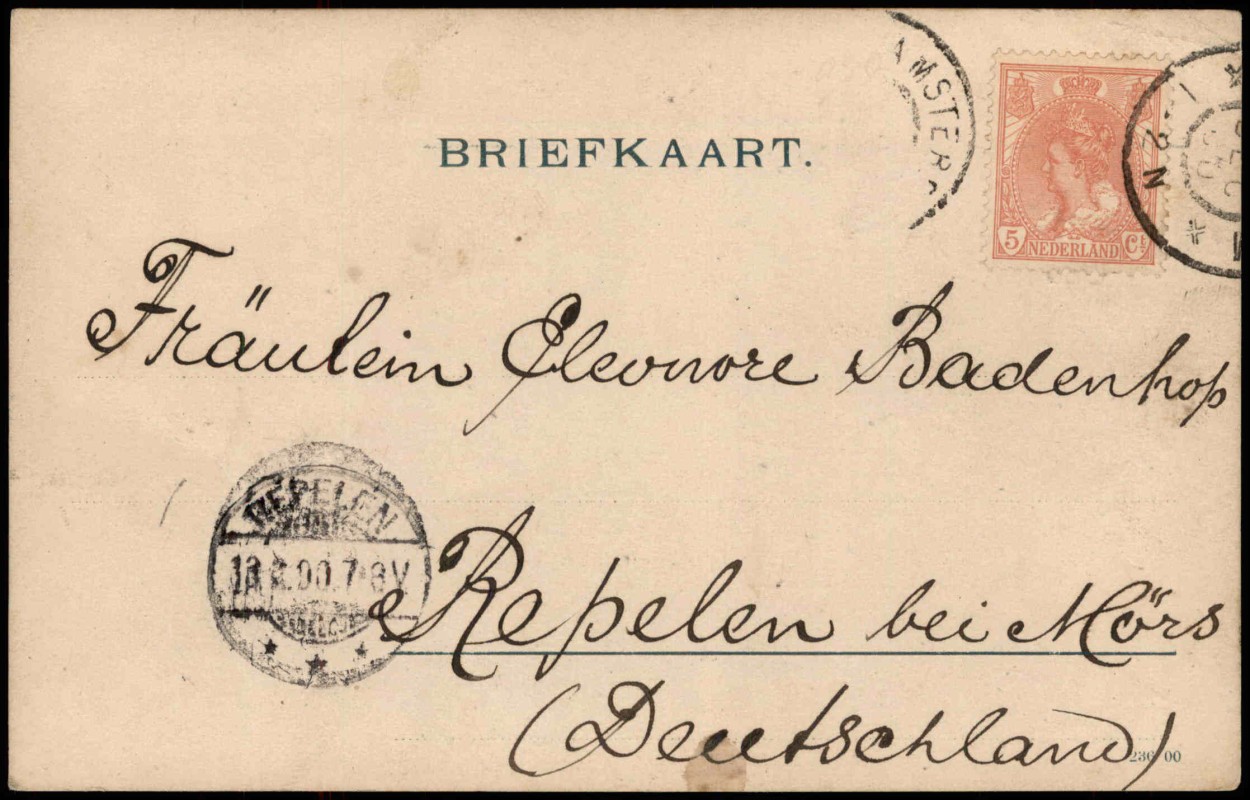 BRIEFKAART.
AMSTERD
1-2 N
5 NEDERLAND Ct
Fräulein Eleonore Badenhop
REPELEN
7-8V
Repelen bei Mörs
(Deutschland)